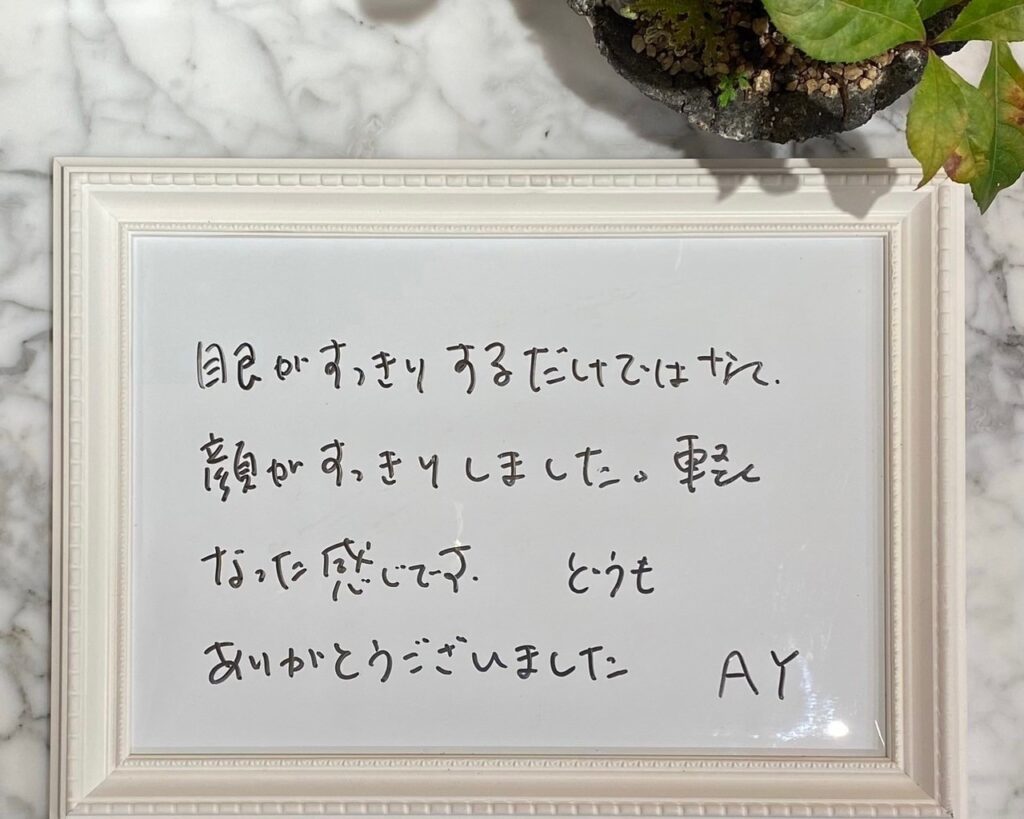 眼がすっきりするだけではなくて、
顔がすっきりしました。軽く
なった感じです。 どうも
ありがとうございました AY